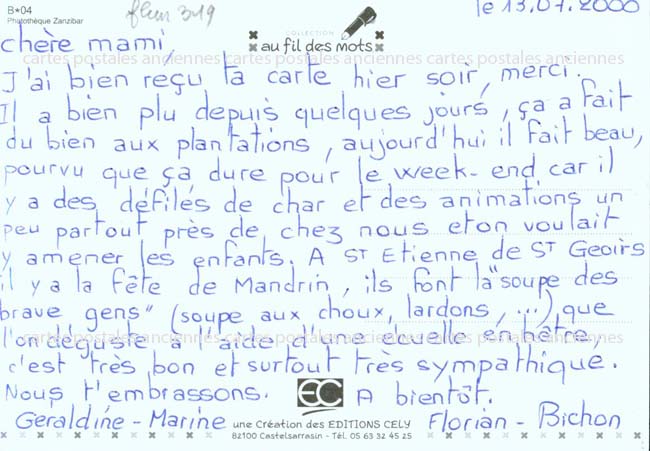 B*04
Photothèque Zanzibar
fleur 319
le 13.07.2000
COLLECTION
au fil des mots
chère mami,
cartes postales anciennes cartes postales anciennes cartes postales anciennes
J'ai bien reçu ta carte hier soir, merci.
Il a bien plu depuis quelques jours, ça a fait
du bien aux plantations, aujourd'hui il fait beau,
pourvu que ça dure pour le week-end car il
y a des défilés de char et des animations un
peu partout près de chez nous et on voulait
y amener les enfants. A St Etienne de St Geoirs
il y a la fête de Mandrin, ils font la "soupe des
brave gens" (soupe aux choux, lardons, ...) que
cartes postales anciennes cartes postales anciennes cartes postales anciennes
l'on dégiste à l'aide d'une écuelle en hêtre,
c'est très bon et surtout très sympathique.
Nous t'embrassons. EC A bientôt.
Géraldine - Marine Florian - Bichon
une Création des EDITIONS CELY
82100 Castelsarrasin - Tél. 05 63 32 45 25